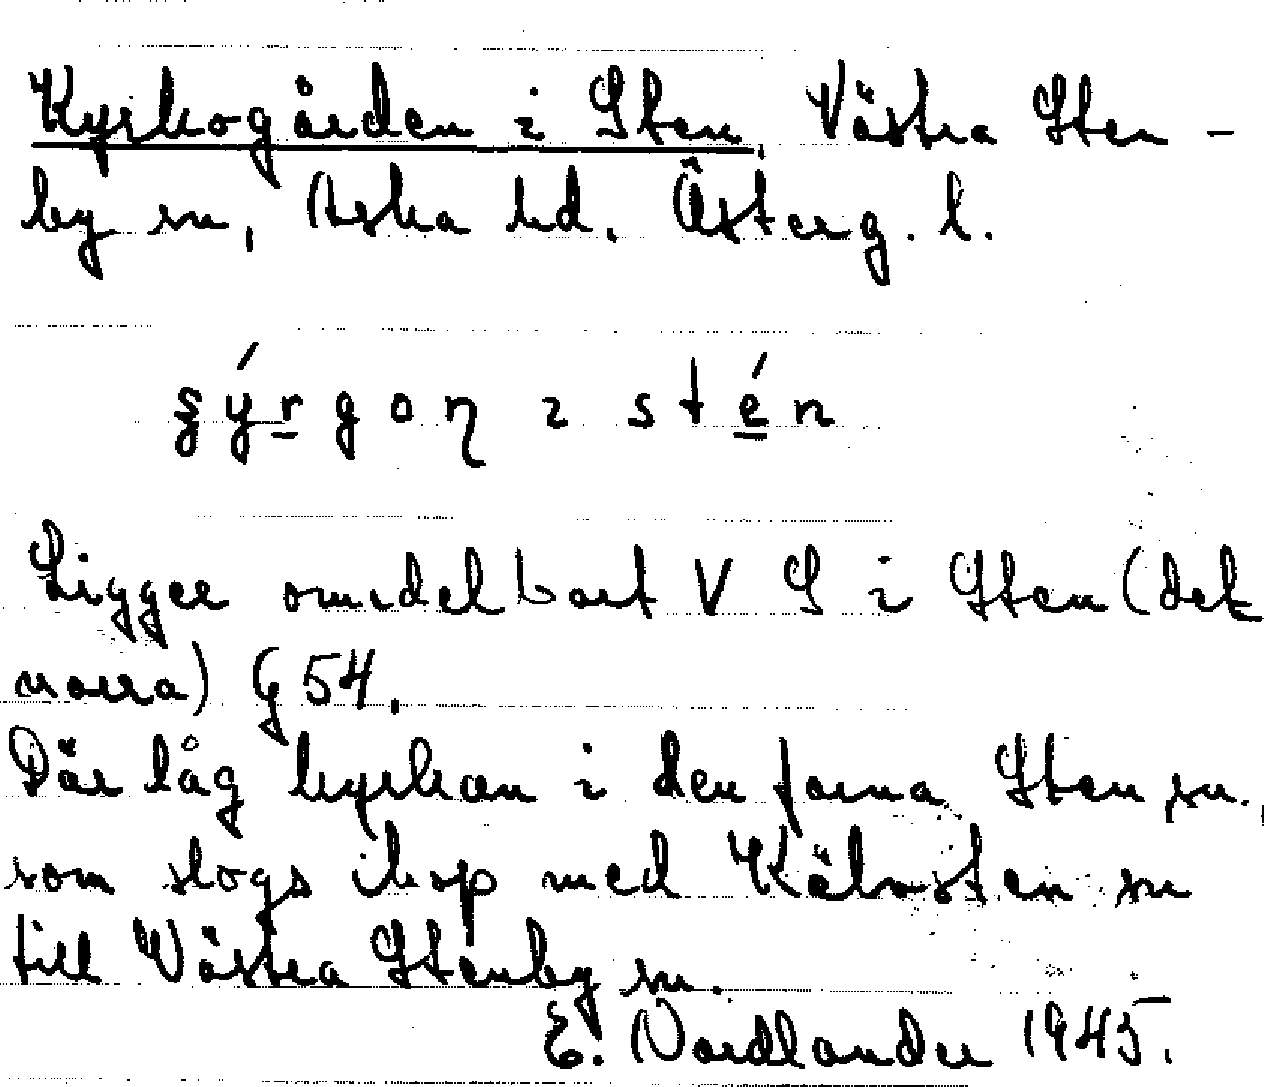 Kyrkogården i Sten, Västra Sten-
by sn, Aska hd. Österg. l.
i stén
Ligger omedelbart V S i Sten (det
norra) G 54.
Där låg kyrkan i den forna Sten sn.,
som slogs ihop med Kälvsten sn
till Västra Stenby sn.
E. Nordlander 1945.